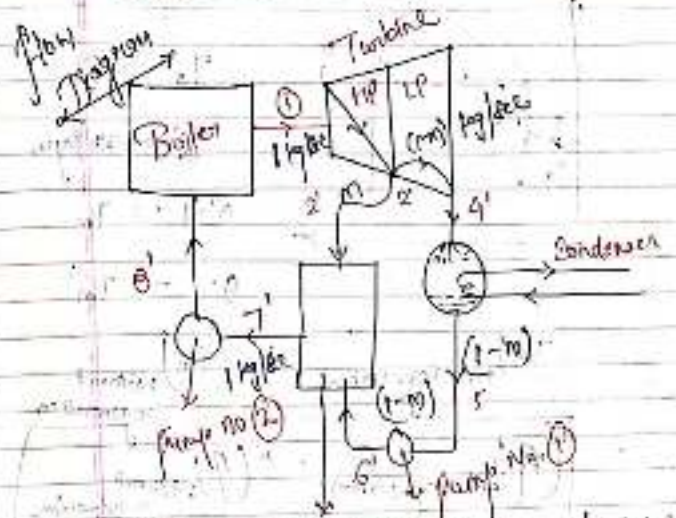 flow
Diagram
Turbine
Boiler
①
1 kg/sec
HP
LP
(1-m)
1 kg/sec
2'
m
2'
4'
Condenser
8'
7'
1 kg/sec
(1-m)
5
(1-m)
6'
pump no ②
pump No. ①